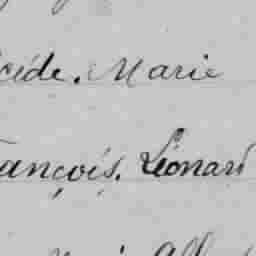 cide. Marie
ançois. Léonard